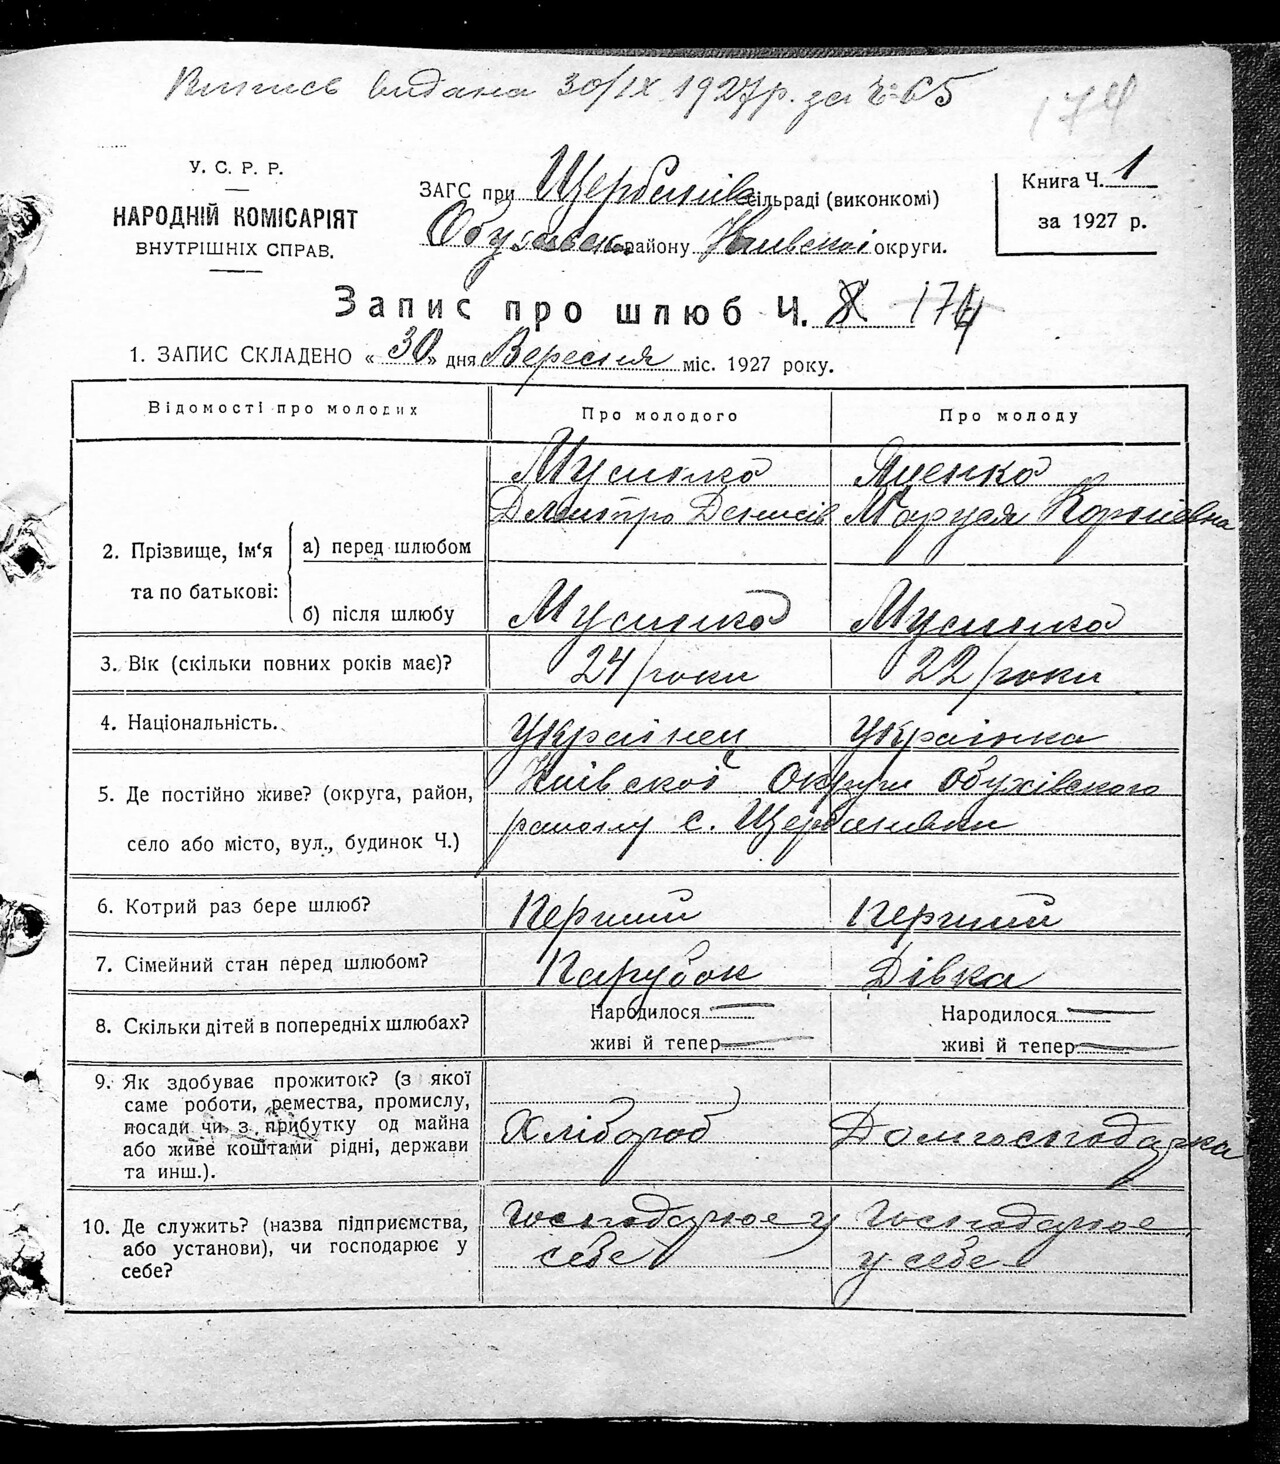 Виписъ видана 30/IX 1927 р. за Ч 65
174
У. С. Р. Р.
НАРОДНІЙ КОМІСАРІЯТ
ВНУТРІШНІХ СПРАВ.
ЗАГС при Щербанів сільраді (виконкомі)
Обухівськ. району Київскої округи.
Книга Ч. 1
за 1927 р.
Запис про шлюб Ч. 8 174
1. ЗАПИС СКЛАДЕНО « 30 » дня Вересня міс. 1927 року.
Відомості про молодих Про молодого Про молоду
2. Прізвище, ім‘я та по батькові:
а) перед шлюбом
Дмитро Денисів Маруся Корніевна
б) після шлюбу
3. Вік (скільки повних років має)? 24/роки 22/роки
4. Національність. Українец Українка
5. Де постійно живе? (округа, район, Київскої Округи Обухівского
село або місто, вул., будинок Ч.) району с. Щербанівки
6. Котрий раз бере шлюб? Перший Перший
7. Сімейний стан перед шлюбом? Парубок Дівка
8. Скільки дітей в попередніх шлюбах? Народилося Народилося
живі й тепер живі й тепер
9. Як здобуває прожиток? (з якої
саме роботи, ремества, промислу,
посади чи з прибутку од майна Хлібороб Домгосподарка
або живе коштами рідні, держави
та инш.).
10. Де служить? (назва підприємства, Господарюе у Господарюе
або установи), чи господарює у себе у себе
себе?